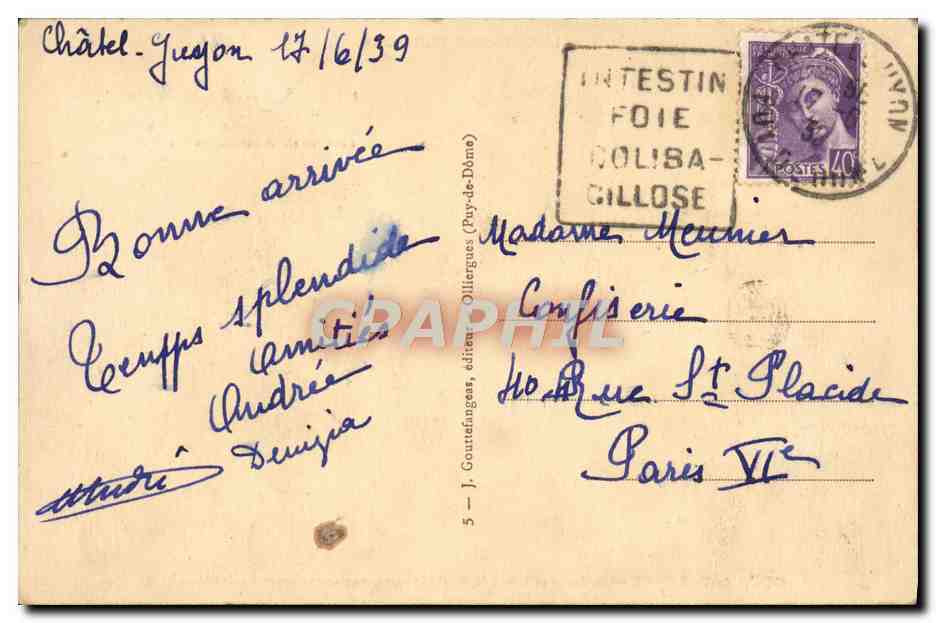 Châtel-Guyon 17/6/39
Bonne arrivée
Temps splendide
Amitiés
Andrée
Denizia
André
5 — J. Gouttefangeas, éditeur, Olliergues (Puy-de-Dôme)
INTESTIN
FOIE
COLIBA-
CILLOSE
RÉPUBLIQUE
FRANÇAISE
POSTES 40
Madame Meunier
Confiserie
40 Rue St Placide
Paris VIe
GRAPHIL